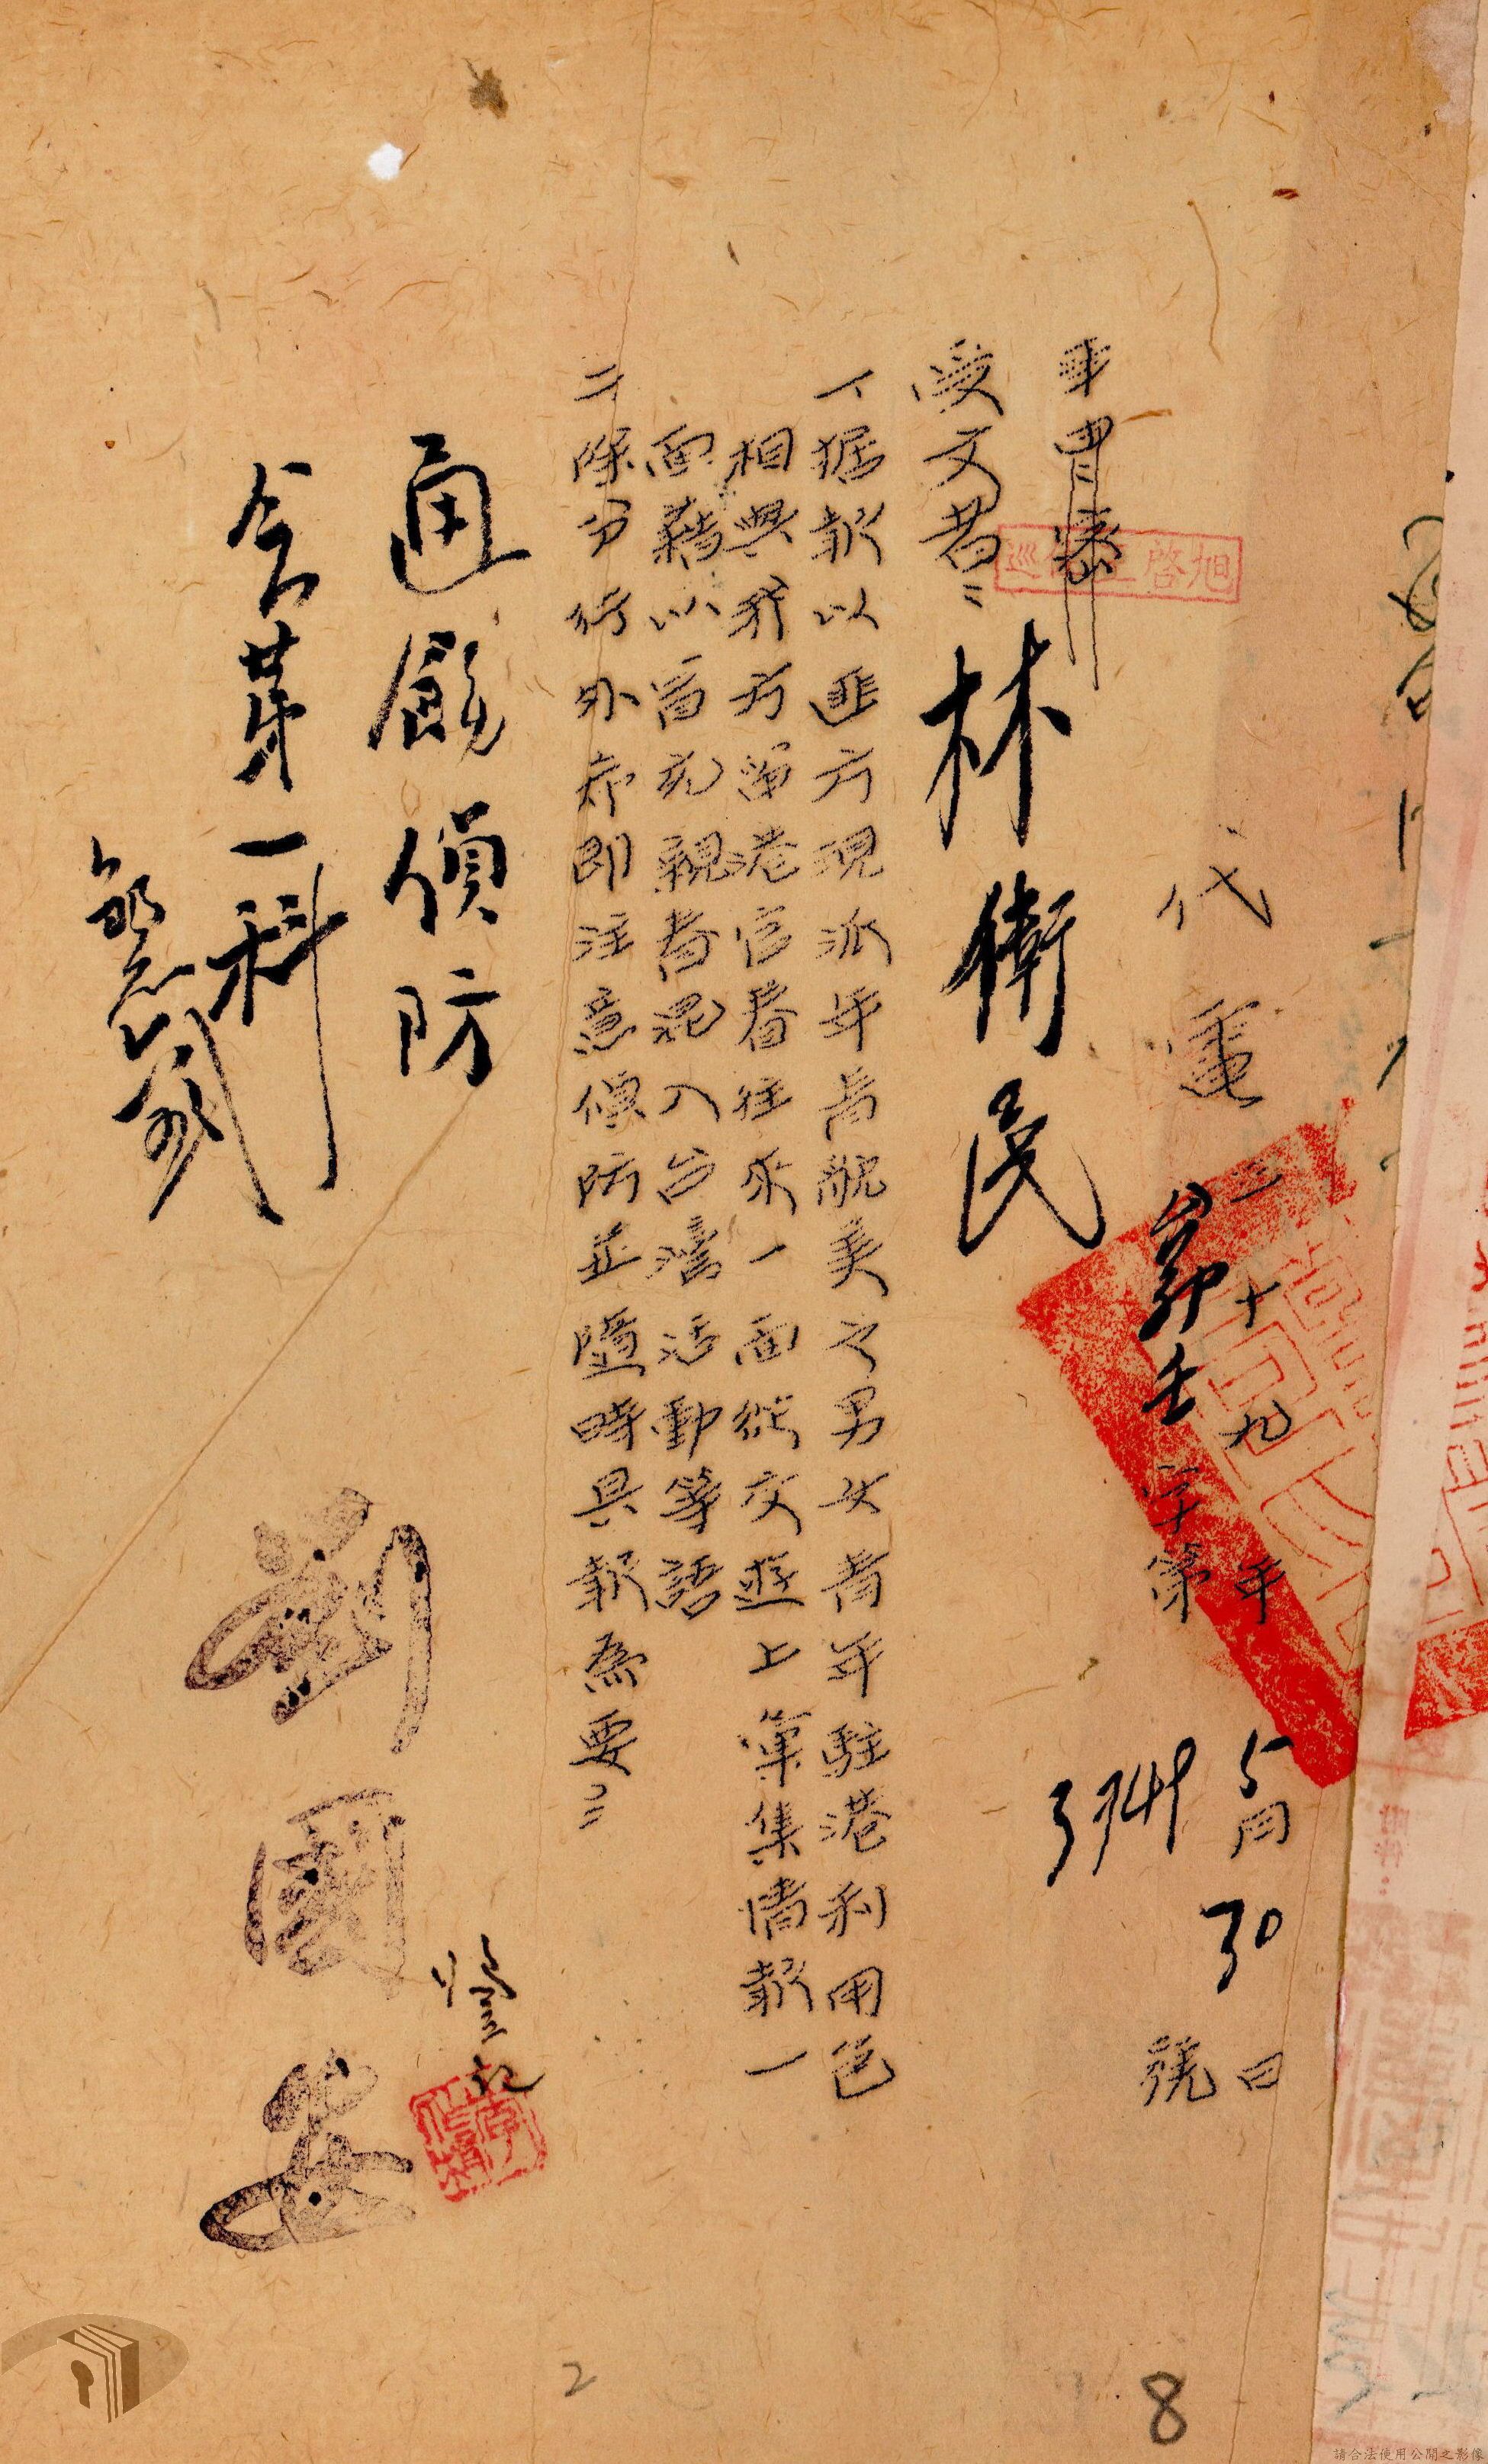 代電
三十九年5月30日
字第3749號
受文者：林衛民
一、据報以匪方現派年青貌美之男女青年駐港利用色
相與我方留港官眷往來一面從交遊上蒐集情報一
面藉以冒充親眷混入台灣活動等語
二、除分行外希即注意偵防並隨時具報為要
通飭偵防
會第一科
劉國安
8
2
請合法使用公開之影像